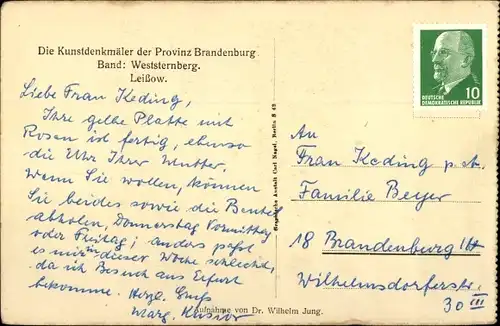 Die Kunstdenkmäler der Provinz Brandenburg
Band: Weststernberg.
Leißow.
Liebe Frau Keding,
Ihre gelbe Platte mit
Rosen ist fertig, ebenso
die Uhr Ihrer Mutter.
Wenn Sie wollen, können
Sie beides sowie die
abholen, Donnerstag Vormittag
oder Freitag; anders paßt
es mir in dieser Woche schlecht,
da ich Besuch aus Erfurt
bekomme. Herzl. Gruß
Marg.
Aufnahme von Dr. Wilhelm Jung.
Graphische Anstalt Carl Nagel, Berlin S 42
10
DEUTSCHE
DEMOKRATISCHE REPUBLIK
An
Frau Keding p. A.
Familie Beyer
18 Brandenburg
Wilhelmsdorferstr.
30 III